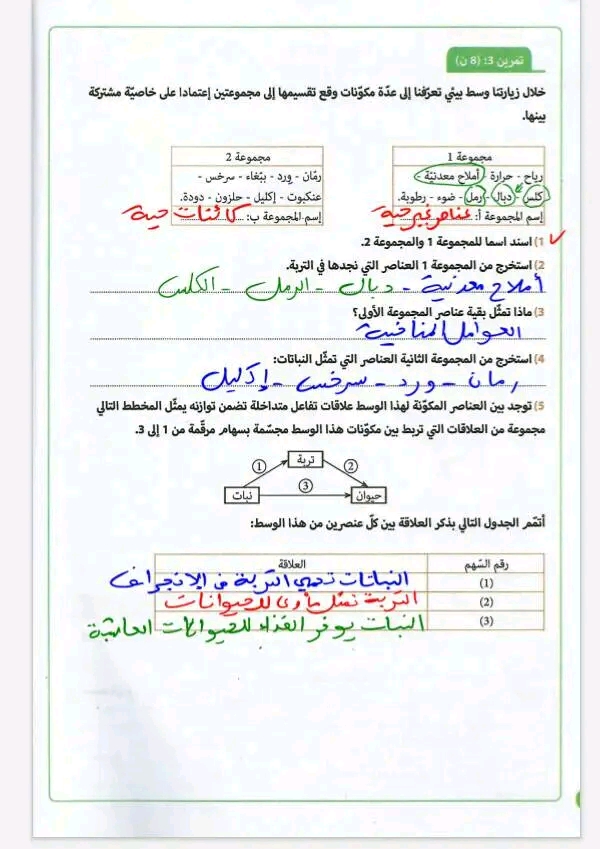 تمرين 3: (8 ن)
خلال زيارتنا وسط بيئي تعرّفنا إلى عدّة مكوّنات وقع تقسيمها إلى مجموعتين إعتمادا على خاصيّة مشتركة
بينها.
مجموعة 1
رياح - حرارة - أملاح معدنيّة -
كلس - دبال - رمل - ضوء - رطوبة.
إسم المجموعة أ: عناصر غير حية
مجموعة 2
رمّان - ورد - ببّغاء - سرخس -
عنكبوت - إكليل - حلزون - دودة.
إسم المجموعة ب: كائنات حية
1) اسند اسما للمجموعة 1 والمجموعة 2.
2) استخرج من المجموعة 1 العناصر التي نجدها في التربة.
أملاح معدنية - دبال - الرمل - الكلس
3) ماذا تمثّل بقية عناصر المجموعة الأولى؟
العوامل المناخية
4) استخرج من المجموعة الثانية العناصر التي تمثّل النباتات:
رمان - ورد - سرخس - إكليل
5) توجد بين العناصر المكوّنة لهذا الوسط علاقات تفاعل متداخلة تضمن توازنه يمثّل المخطط التالي
مجموعة من العلاقات التي تربط بين مكوّنات هذا الوسط مجسّمة بسهام مرقّمة من 1 إلى 3.
تربة
1 2
3
نبات حيوان
أتمّم الجدول التالي بذكر العلاقة بين كلّ عنصرين من هذا الوسط:
رقم السّهم العلاقة
(1) النباتات تحمي التربة من الإنجراف
(2) التربة تمثل مأوى للحيوانات
(3) النبات يوفر الغذاء للحيوانات العاشبة